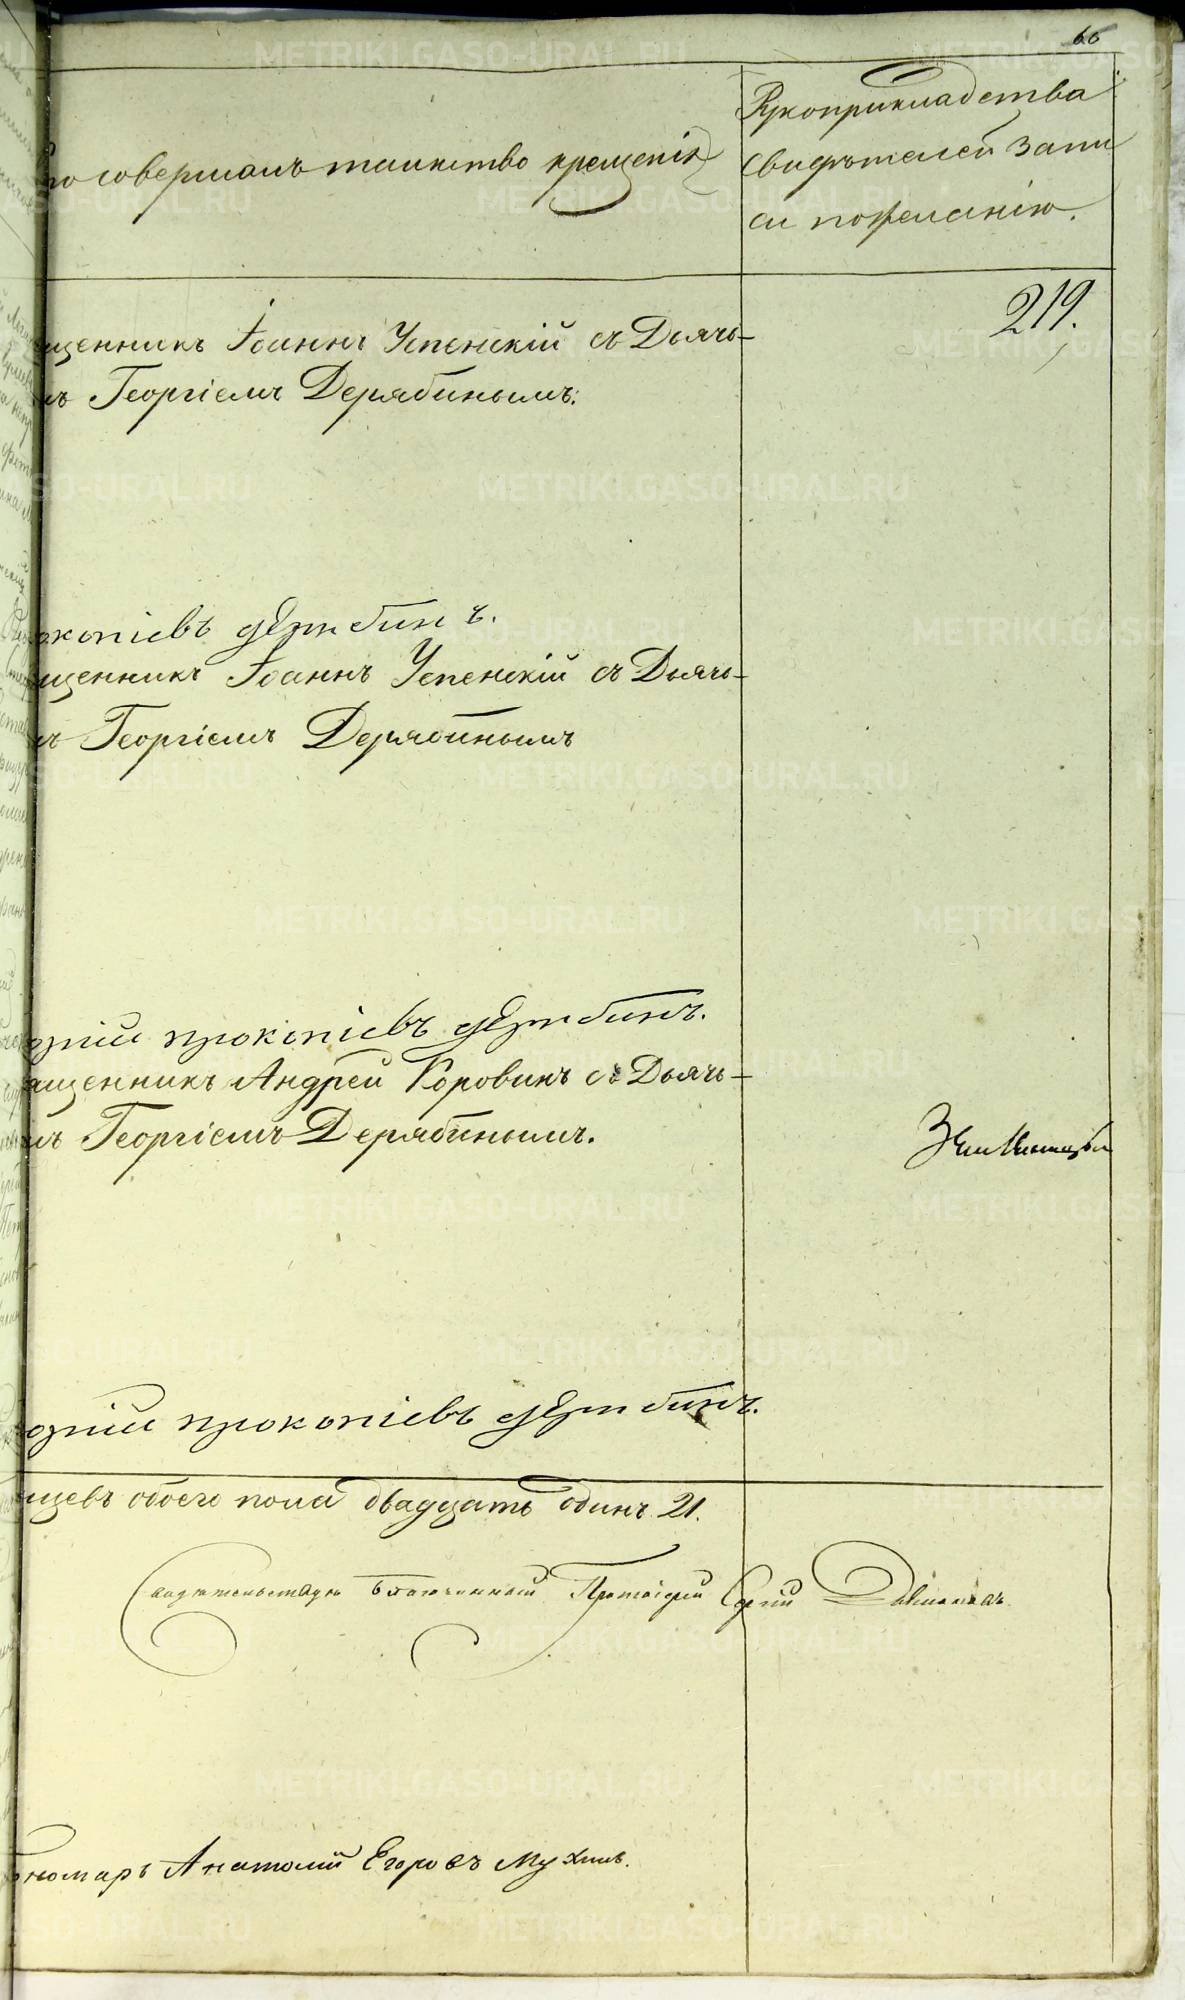 66
то совершалъ таинство крещенія
Рукоприкладства
свидѣтелей запи
си по желанію.
219.
щенникъ Іоаннъ Успенскій съ Дьячь-
мъ Георгіемъ Дерябинымъ.
окопіевъ Дерябинъ.
щенникъ Іоаннъ Успенскій съ Дьячь-
мъ Георгіемъ Дерябинымъ
ргій прокопіевъ Дерябинъ.
ященникъ Андрей Коровинъ съ Дьячь-
мъ Георгіемъ Дерябинымъ.
ргій прокопіевъ Дерябинъ.
щевъ обоего пола двадцать одинъ 21.
Свидѣтельствую Благочинный Протоіерей Сергій
номарь Анатолій Егоровъ Мухинъ.
METRIKI.GASO-URAL.RU